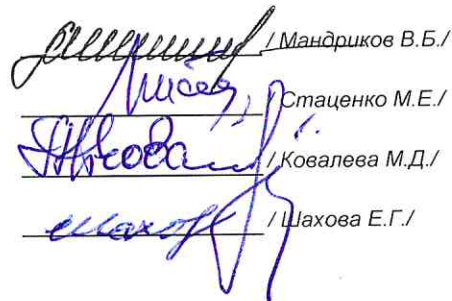 / Мандриков В.Б./
/ Стаценко М.Е./
/ Ковалева М.Д./
/ Шахова Е.Г./